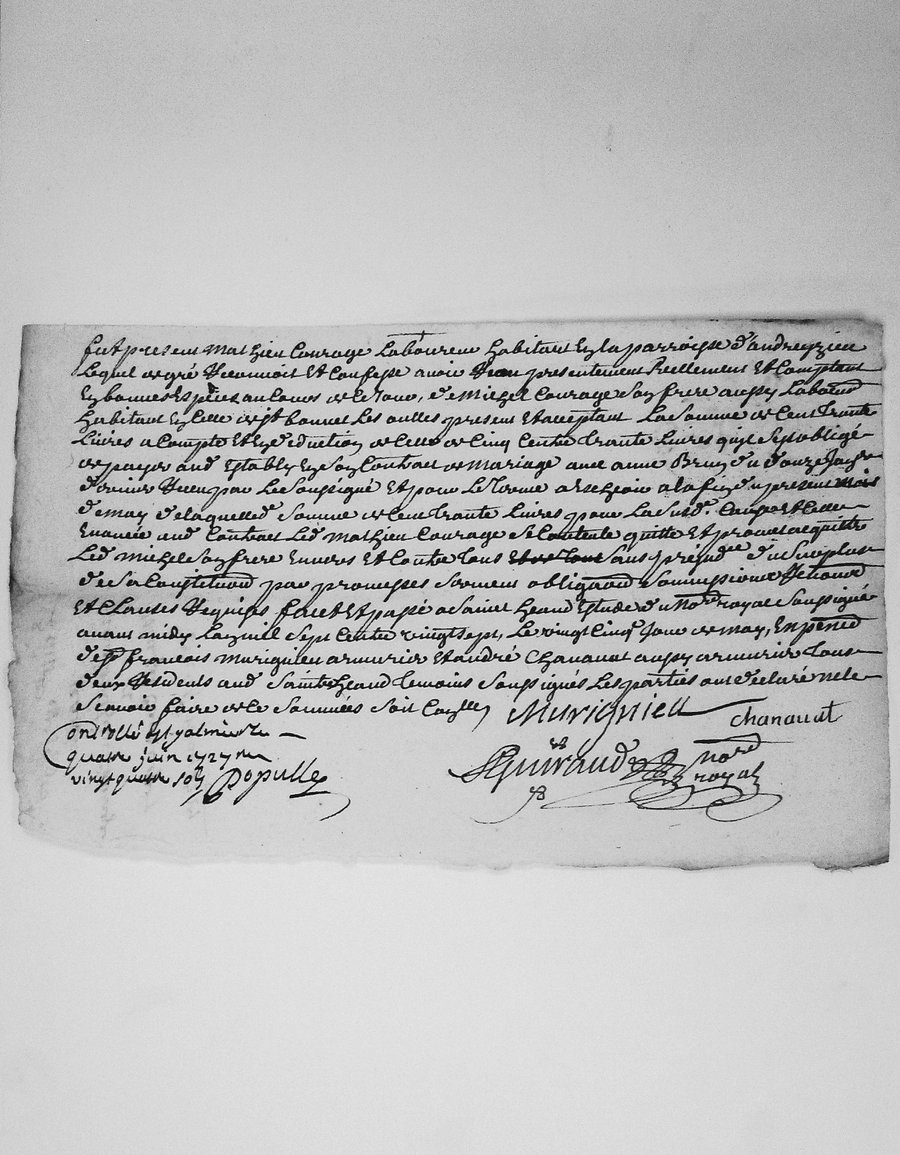 fut present mathieu Courage Laboureur habitant en la parroisse d'andrezieu
Lequel de gré Reconnoit Et Confesse avoir Receu presentement Reellement Et Comptant
En bonnes Especes au Cours de Ce Jour, de michel Courage Son frere aussy Laboud
habitant En Celle de st bonnet Les oulles present Et acceptant La Somme de Cent Trante
Livres a Compte Et En deduction de Celle de Cinq Cents Trante Livres qu'il S'est obligé
de payer aud Establi En Son Contract de mariage avec anne Brun du douze Janvr
dernier Receu par Le Soussigné Et pour Le Terme a Escheoir a la fin du present mois
de may de laquelle de Somme de Cent Trante Livres pour La Susd. Cause Et Celle
Enoncée aud Contract Led mathieu Courage Se Contente quitte Et promet acquitter
Led michel Son frere Envers Et Contre Tous Sans prejudce du Surplus
de Sa Constitution par promesses Serment obligaond Soumissions Renonond
Et Clauses Requises fait Et passé a Saint heand Estude du Nore royal Soussigné
avant midy Lan mil Sept Cents vingt Sept, Le vingt Cinq Jour de may, En pnce
de sr francois murignieu armurier Et andré Chanavat aussy armurier Tous
deux Residents aud Saint heand Temoins Soussignés Les parties ont declaré ne le
Scavoir faire de Ce Sommées Soit Conllé
Murignieu chanavat
Controllé a St galmier Le
quatre juin 1727 Receu
vingt quatre sols Populle
Guiraud Nore
royal